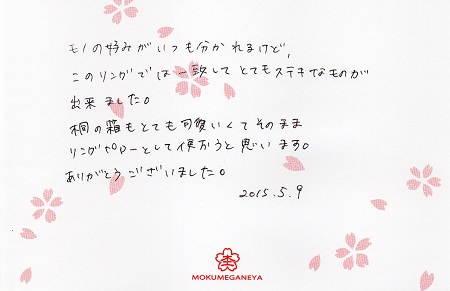 モノの好みがいつも分かれるけど、
このリングでは一致して とてもステキなものが
出来ました。
桐の箱もとても可愛いくてそのまま
リングピローとして使おうと思います。
ありがとうございました。
2015.5.9
MOKUMEGANEYA